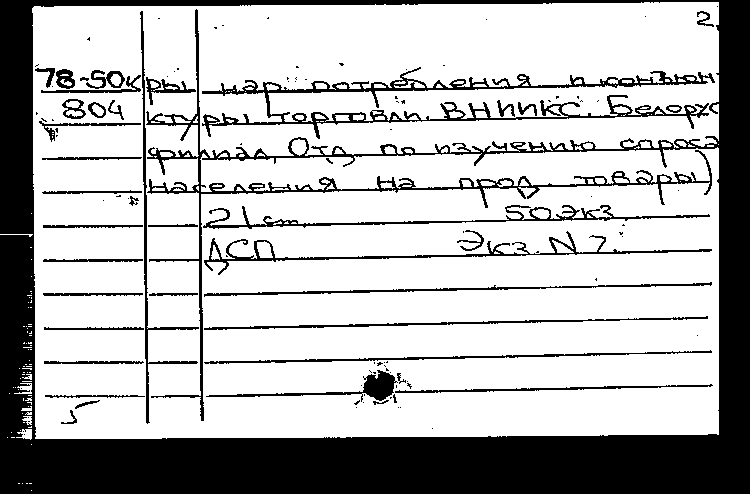 2.
78-50к ры нар. потребления и конъюн-
804 ктуры торговли. ВНИИКС. Белорус
филиал, Отд. по изучению спроса
населения на прод. товары).
21 cm. 50 экз.
ДСП Экз. N 7.
5